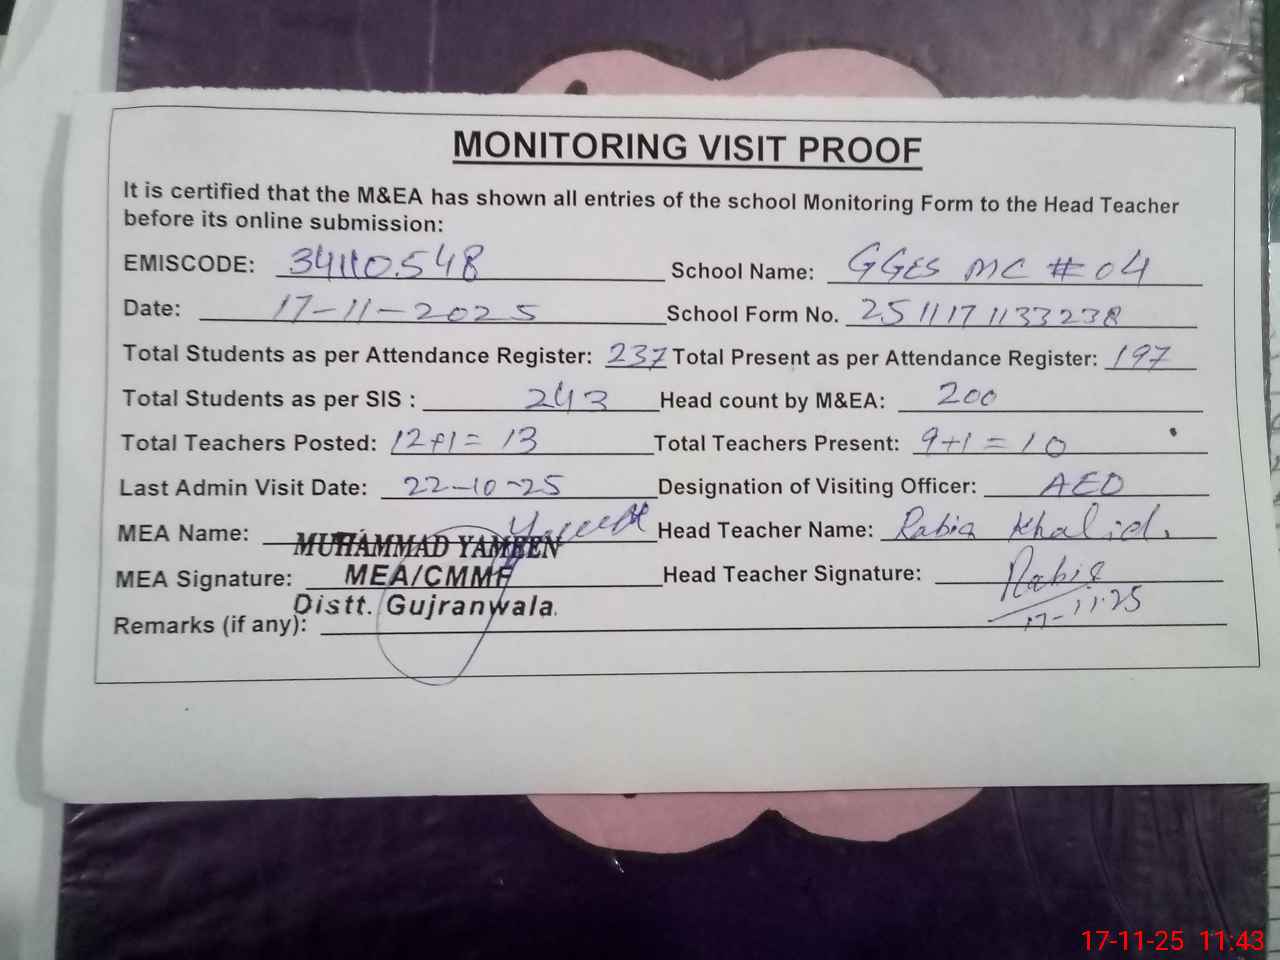 MONITORING VISIT PROOF
It is certified that the M&EA has shown all entries of the school Monitoring Form to the Head Teacher
before its online submission:
EMISCODE: 34110548 School Name: GGES MC # 04
Date: 17-11-2025 School Form No. 2511171133238
Total Students as per Attendance Register: 237 Total Present as per Attendance Register: 197
Total Students as per SIS : 243 Head count by M&EA: 200
Total Teachers Posted: 12+1= 13 Total Teachers Present: 9+1=10
Last Admin Visit Date: 22-10-25 Designation of Visiting Officer: AEO
MEA Name: MUHAMMAD YAMEEN Head Teacher Name: Rabia Khalid.
MEA Signature: MEA/CMMF Head Teacher Signature: Rabia
Distt. Gujranwala. 17-11-25
Remarks (if any):
17-11-25 11:43